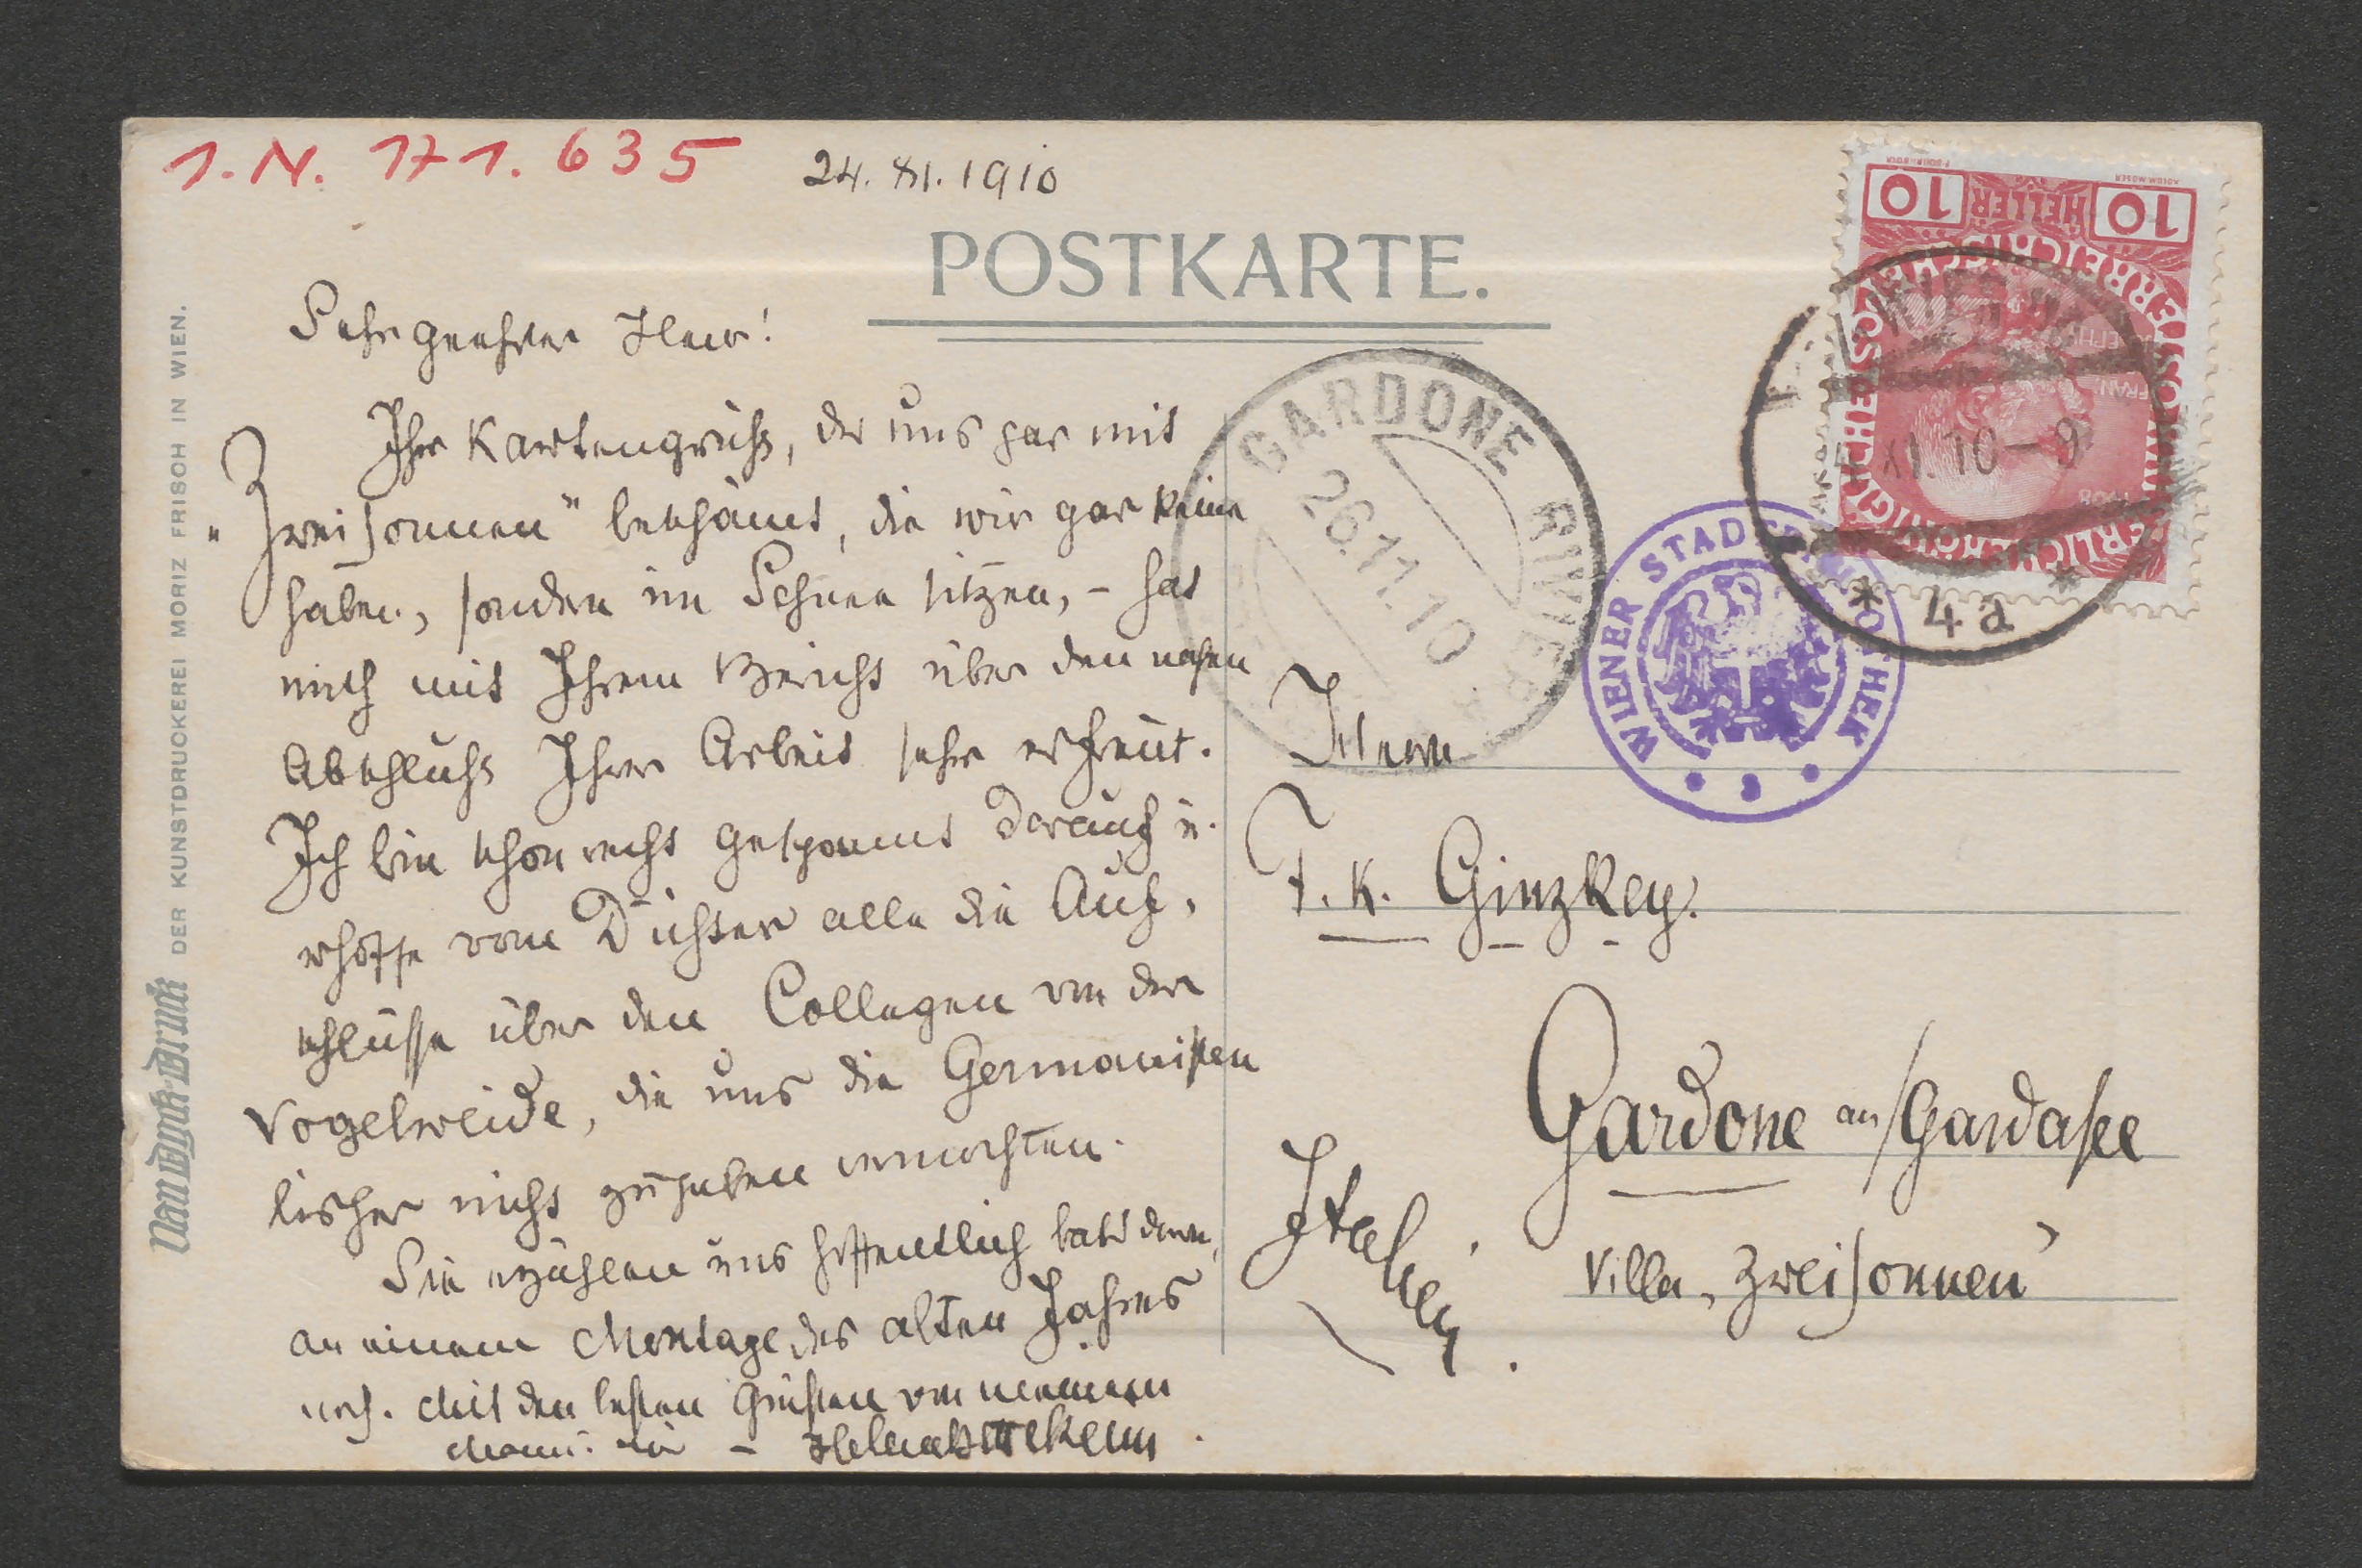 1. N. 171. 635
24. XI. 1910
POSTKARTE.
Sehr geehrter Herr!
Ihr Kartengruß, der uns gar mit
"Zweisonnen" beschämt, die wir gar keine
haben, sondern im Schnee sitzen, - hat
mich mit Ihrem Bericht über den nahen
Abschluß Ihrer Arbeit sehr erfreut.
Ich bin schon recht gespannt darauf u.
erhoffe vom Dichter alle die Auf-
schlüsse über den Collegen von der
Vogelweide, die uns die Germanisten
bisher nicht zu geben vermochten.
Sie erzählen uns hoffentlich bald davon,
an einem Montage des alten Jahres
noch. Mit den besten Grüßen von meinem
VanDyck-Druck DER KUNSTDRUCKEREI MORIZ FRISCH IN WIEN.
GARDONE RIVIERA
26.11.10
WIENER STADTBIBLIOTHEK
10 HELLER 10
1908
XI. 10-9
* 4a *
Herrn
F. K. Ginzkey.
Gardone am Gardasee
Villa "Zweisonnen"
Italien.